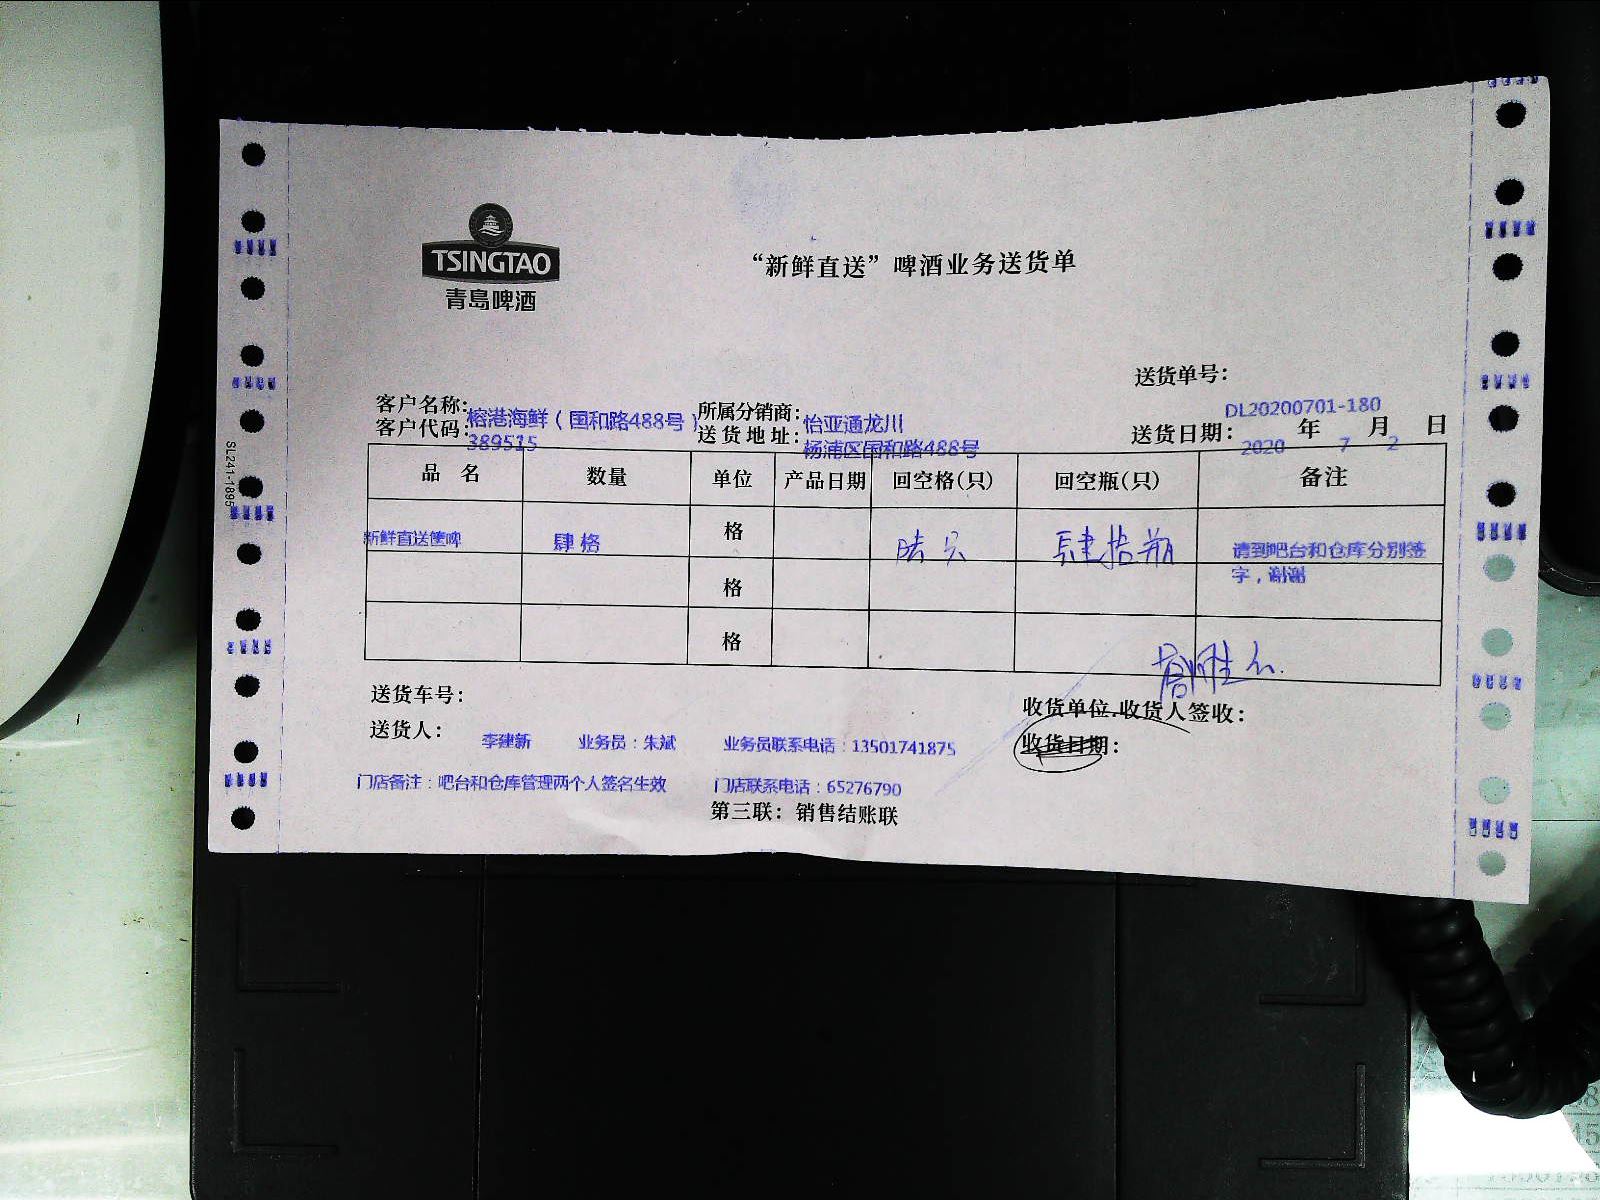 TSINGTAO
青岛啤酒
“新鲜直送”啤酒业务送货单
送货单号：
DL20200701-180
客户名称：榕港海鲜（国和路488号） 所属分销商：怡亚通龙川
客户代码：389515 送货地址：杨浦区国和路488号 送货日期：2020年7月2日
品名 数量 单位 产品日期 回空格(只) 回空瓶(只) 备注
新鲜直送筐啤 肆格 格 陆只 肆拾瓶 请到吧台和仓库分别签字，谢谢
格
格
送货车号：
收货单位.收货人签收：
送货人：李建新 业务员：朱斌 业务员联系电话：13501741875
收货日期：
门店备注：吧台和仓库管理两个人签名生效 门店联系电话：65276790
第三联：销售结账联
SL241-1895